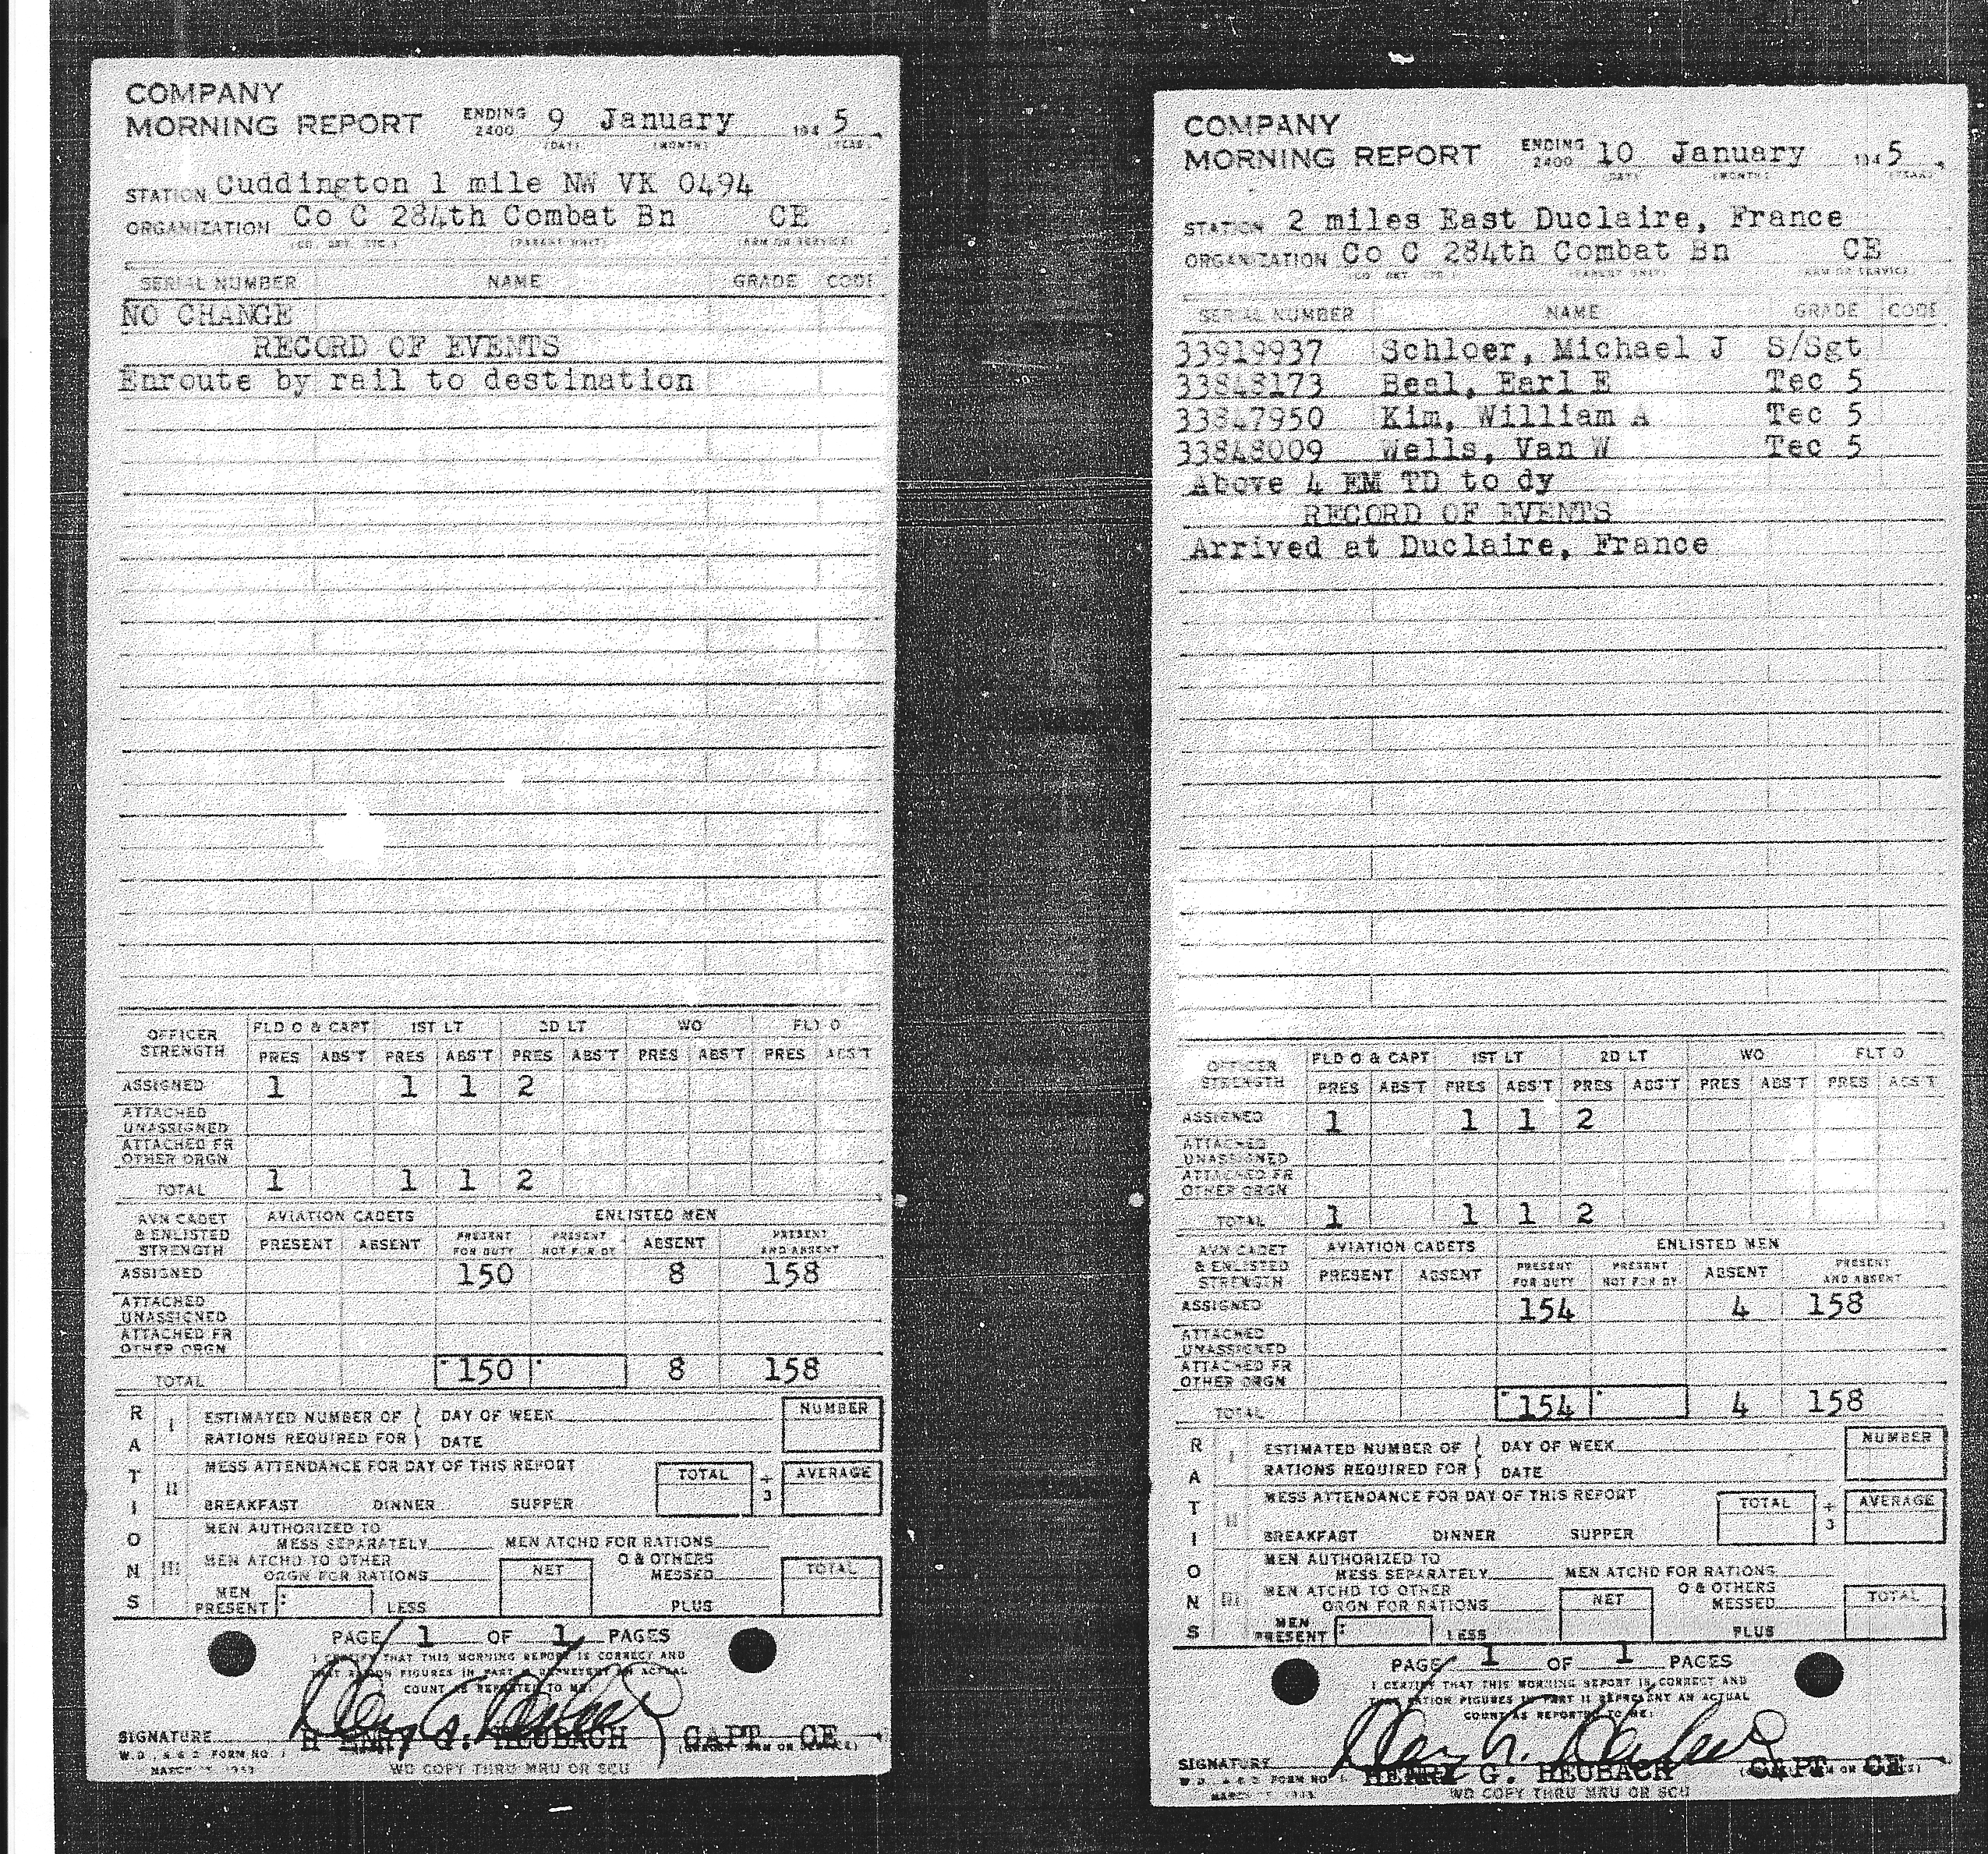 COMPANY
MORNING REPORT ENDING 2400 9 January 194 5
(DAY) (MONTH) (YEAR)
STATION Cuddington 1 mile NW VK 0494
ORGANIZATION Co C 284th Combat Bn CE
(CO. DET. ETC.) (PARENT UNIT) (ARM OR SERVICE)
SERIAL NUMBER NAME GRADE CODE
NO CHANGE
RECORD OF EVENTS
Enroute by rail to destination
OFFICER STRENGTH FLD O & CAPT 1ST LT 2D LT WO FLT O
PRES ABS'T PRES ABS'T PRES ABS'T PRES ABS'T PRES ABS'T
ASSIGNED 1 1 1 2
ATTACHED UNASSIGNED
ATTACHED FR OTHER ORGN
TOTAL 1 1 1 2
AVN CADET & ENLISTED STRENGTH AVIATION CADETS ENLISTED MEN
PRESENT ABSENT PRESENT FOR DUTY PRESENT NOT FOR DY ABSENT PRESENT AND ABSENT
ASSIGNED 150 8 158
ATTACHED UNASSIGNED
ATTACHED FR OTHER ORGN
TOTAL 150 8 158
RATIONS
I ESTIMATED NUMBER OF DAY OF WEEK NUMBER
RATIONS REQUIRED FOR DATE
II MESS ATTENDANCE FOR DAY OF THIS REPORT TOTAL ÷ 3 AVERAGE
BREAKFAST DINNER SUPPER
III MEN AUTHORIZED TO
MESS SEPARATELY MEN ATCHD FOR RATIONS
MEN ATCHD TO OTHER NET O & OTHERS TOTAL
ORGN FOR RATIONS MESSED
MEN PRESENT LESS PLUS
PAGE 1 OF 1 PAGES
I CERTIFY THAT THIS MORNING REPORT IS CORRECT AND
THAT RATION FIGURES IN PART II REPRESENT AN ACTUAL
COUNT AS REPORTED TO ME:
SIGNATURE HENRY G. HEUBACH CAPT CE
W.D., A.G.O. FORM NO. 1
MARCH 1943
WD COPY THRU MRU OR SCU
COMPANY
MORNING REPORT ENDING 2400 10 January 194 5
(DAY) (MONTH) (YEAR)
STATION 2 miles East Duclaire, France
ORGANIZATION Co C 284th Combat Bn CE
(CO. DET. ETC.) (PARENT UNIT) (ARM OR SERVICE)
SERIAL NUMBER NAME GRADE CODE
33919937 Schloer, Michael J S/Sgt
33848173 Beal, Earl E Tec 5
33847950 Kim, William A Tec 5
33848009 Wells, Van W Tec 5
Above 4 EM TD to dy
RECORD OF EVENTS
Arrived at Duclaire, France
OFFICER STRENGTH FLD O & CAPT 1ST LT 2D LT WO FLT O
PRES ABS'T PRES ABS'T PRES ABS'T PRES ABS'T PRES ABS'T
ASSIGNED 1 1 1 2
ATTACHED UNASSIGNED
ATTACHED FR OTHER ORGN
TOTAL 1 1 1 2
AVN CADET & ENLISTED STRENGTH AVIATION CADETS ENLISTED MEN
PRESENT ABSENT PRESENT FOR DUTY PRESENT NOT FOR DY ABSENT PRESENT AND ABSENT
ASSIGNED 154 4 158
ATTACHED UNASSIGNED
ATTACHED FR OTHER ORGN
TOTAL 154 4 158
RATIONS
I ESTIMATED NUMBER OF DAY OF WEEK NUMBER
RATIONS REQUIRED FOR DATE
II MESS ATTENDANCE FOR DAY OF THIS REPORT TOTAL ÷ 3 AVERAGE
BREAKFAST DINNER SUPPER
III MEN AUTHORIZED TO
MESS SEPARATELY MEN ATCHD FOR RATIONS
MEN ATCHD TO OTHER NET O & OTHERS TOTAL
ORGN FOR RATIONS MESSED
MEN PRESENT LESS PLUS
PAGE 1 OF 1 PAGES
I CERTIFY THAT THIS MORNING REPORT IS CORRECT AND
THAT RATION FIGURES IN PART II REPRESENT AN ACTUAL
COUNT AS REPORTED TO ME:
SIGNATURE HENRY G. HEUBACH CAPT CE
W.D., A.G.O. FORM NO. 1
WD COPY THRU MRU OR SCU